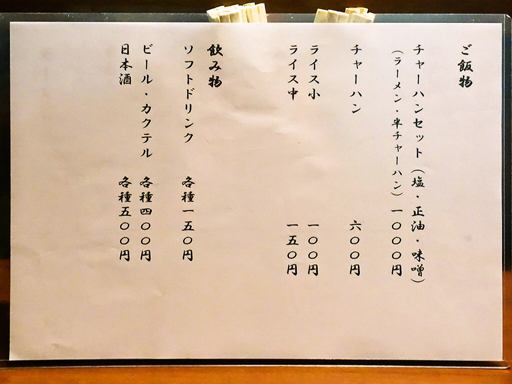 ご飯物
チャーハンセット（塩・正油・味噌）
（ラーメン・半チャーハン）一〇〇〇円
チャーハン 六〇〇円
ライス小 一〇〇円
ライス中 一五〇円
飲み物
ソフトドリンク 各種一五〇円
ビール・カクテル 各種四〇〇円
日本酒 各種五〇〇円